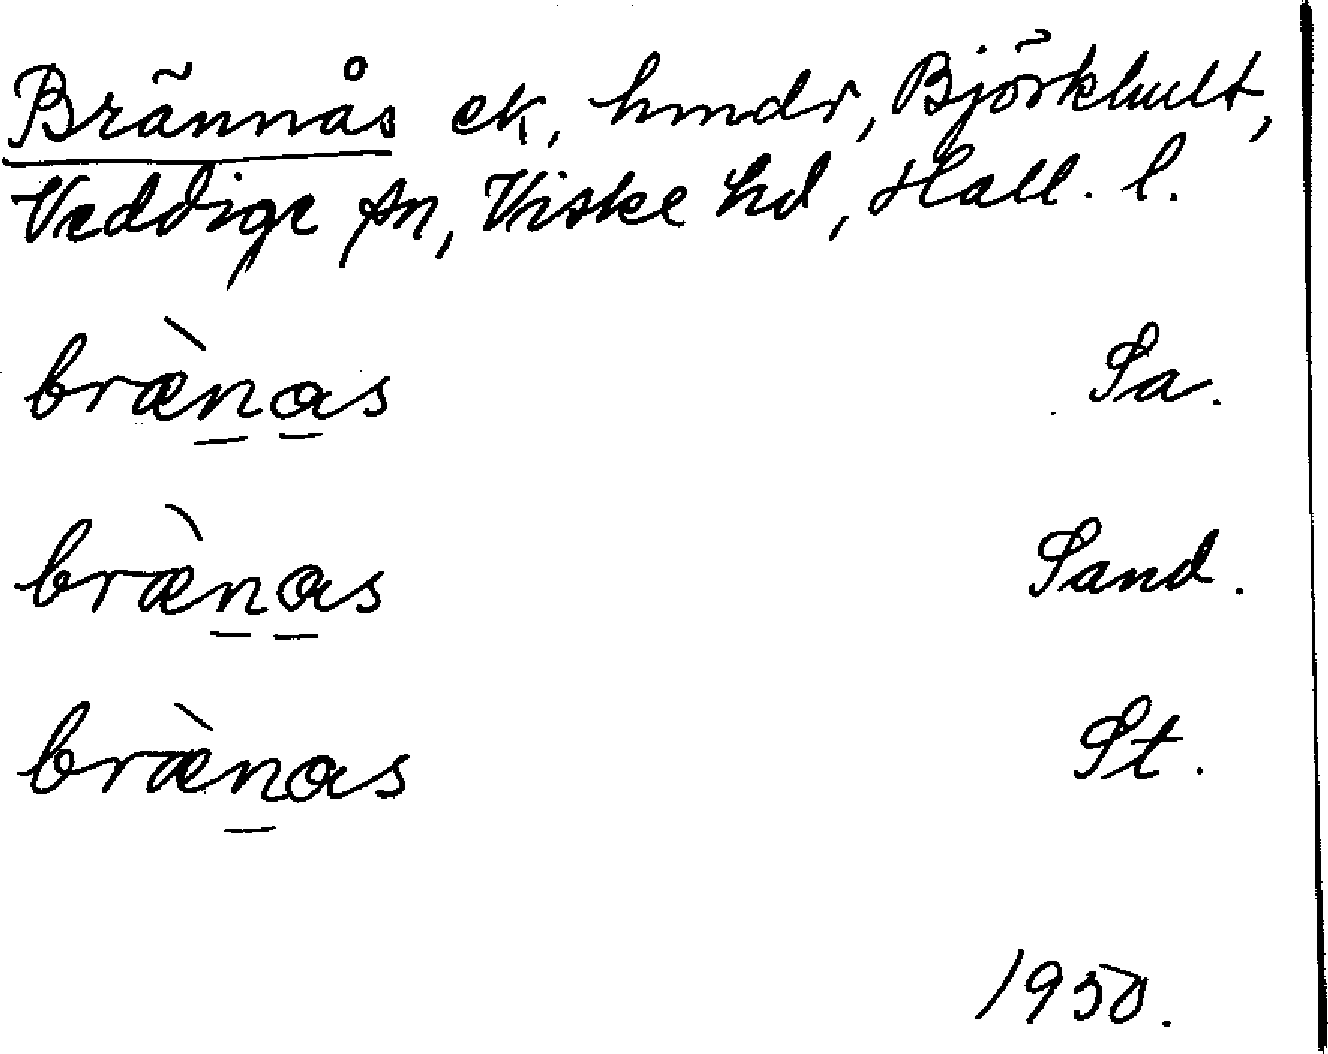 Brännås ek, hmdr, Björkhult,
Veddige sn, Viske hd, Hall. l.
bræ̀nas Sa.
bræ̀nas Sand.
bræ̀nas St.
1950.